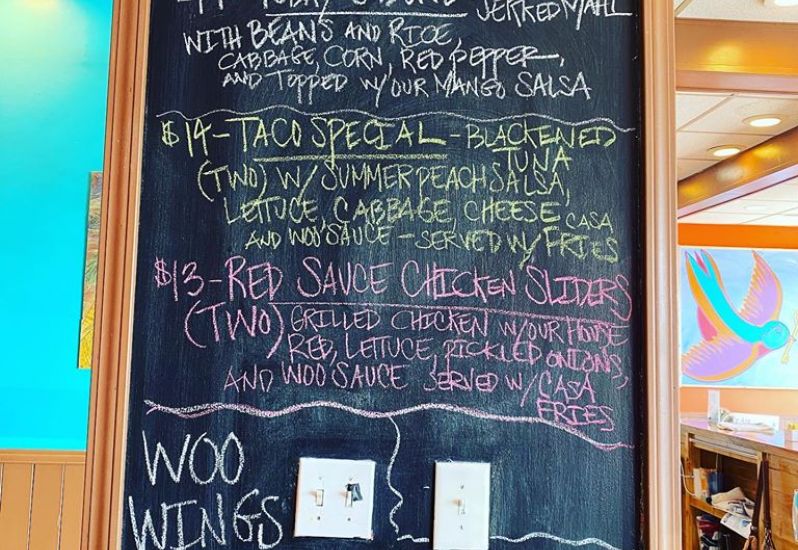 JERKED MAHI
WITH BEANS AND RICE,
CABBAGE, CORN, RED PEPPER,
AND TOPPED W/ OUR MANGO SALSA
$14 - TACO SPECIAL - BLACKENED
TUNA
(TWO) W/ SUMMER PEACH SALSA,
LETTUCE, CABBAGE CHEESE CASA
AND WOO SAUCE - SERVED W/ FRIES
$13 - RED SAUCE CHICKEN SLIDERS
(TWO) GRILLED CHICKEN W/ OUR HOUSE
RED, LETTUCE, PICKLED ONIONS,
AND WOO SAUCE SERVED W/ CASA
FRIES
WOO
WINGS